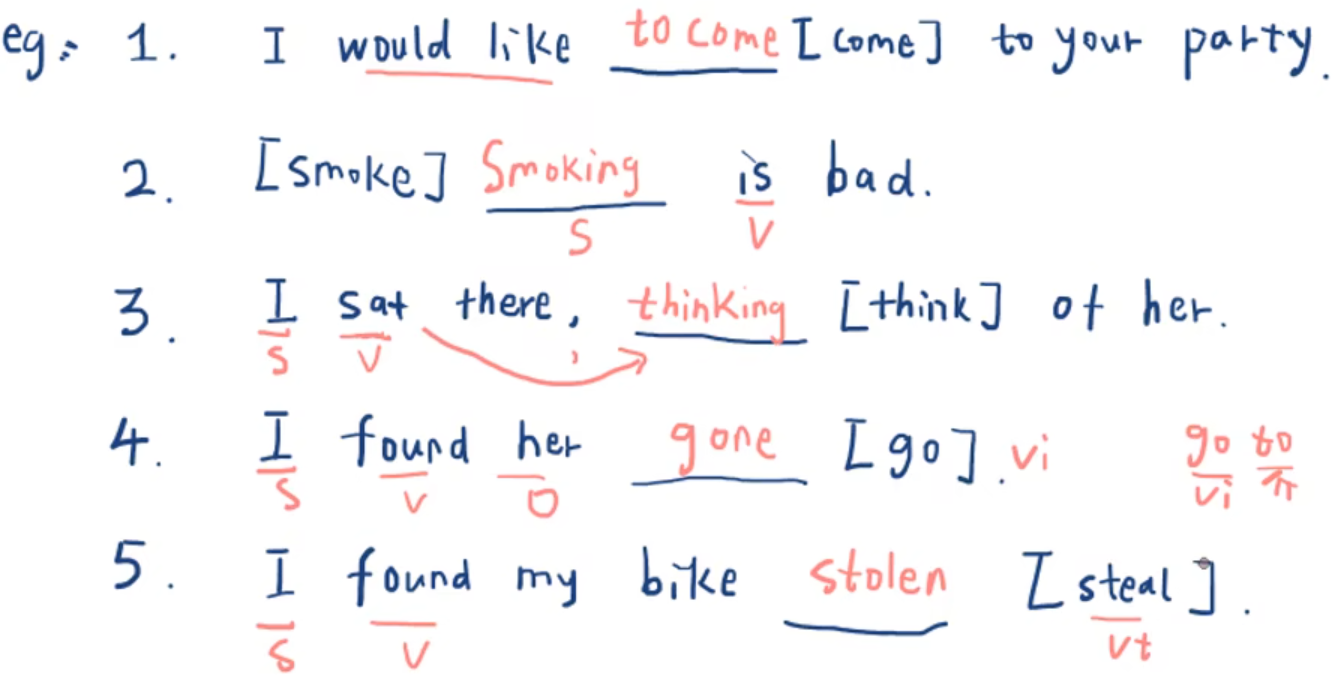 eg: 1. I would like to come [come] to your party.
2. [smoke] Smoking is bad.
S V
3. I sat there, thinking [think] of her.
S V ,
4. I found her gone [go]. vi go to
S V O vi 介
5. I found my bike stolen [steal].
S V vt